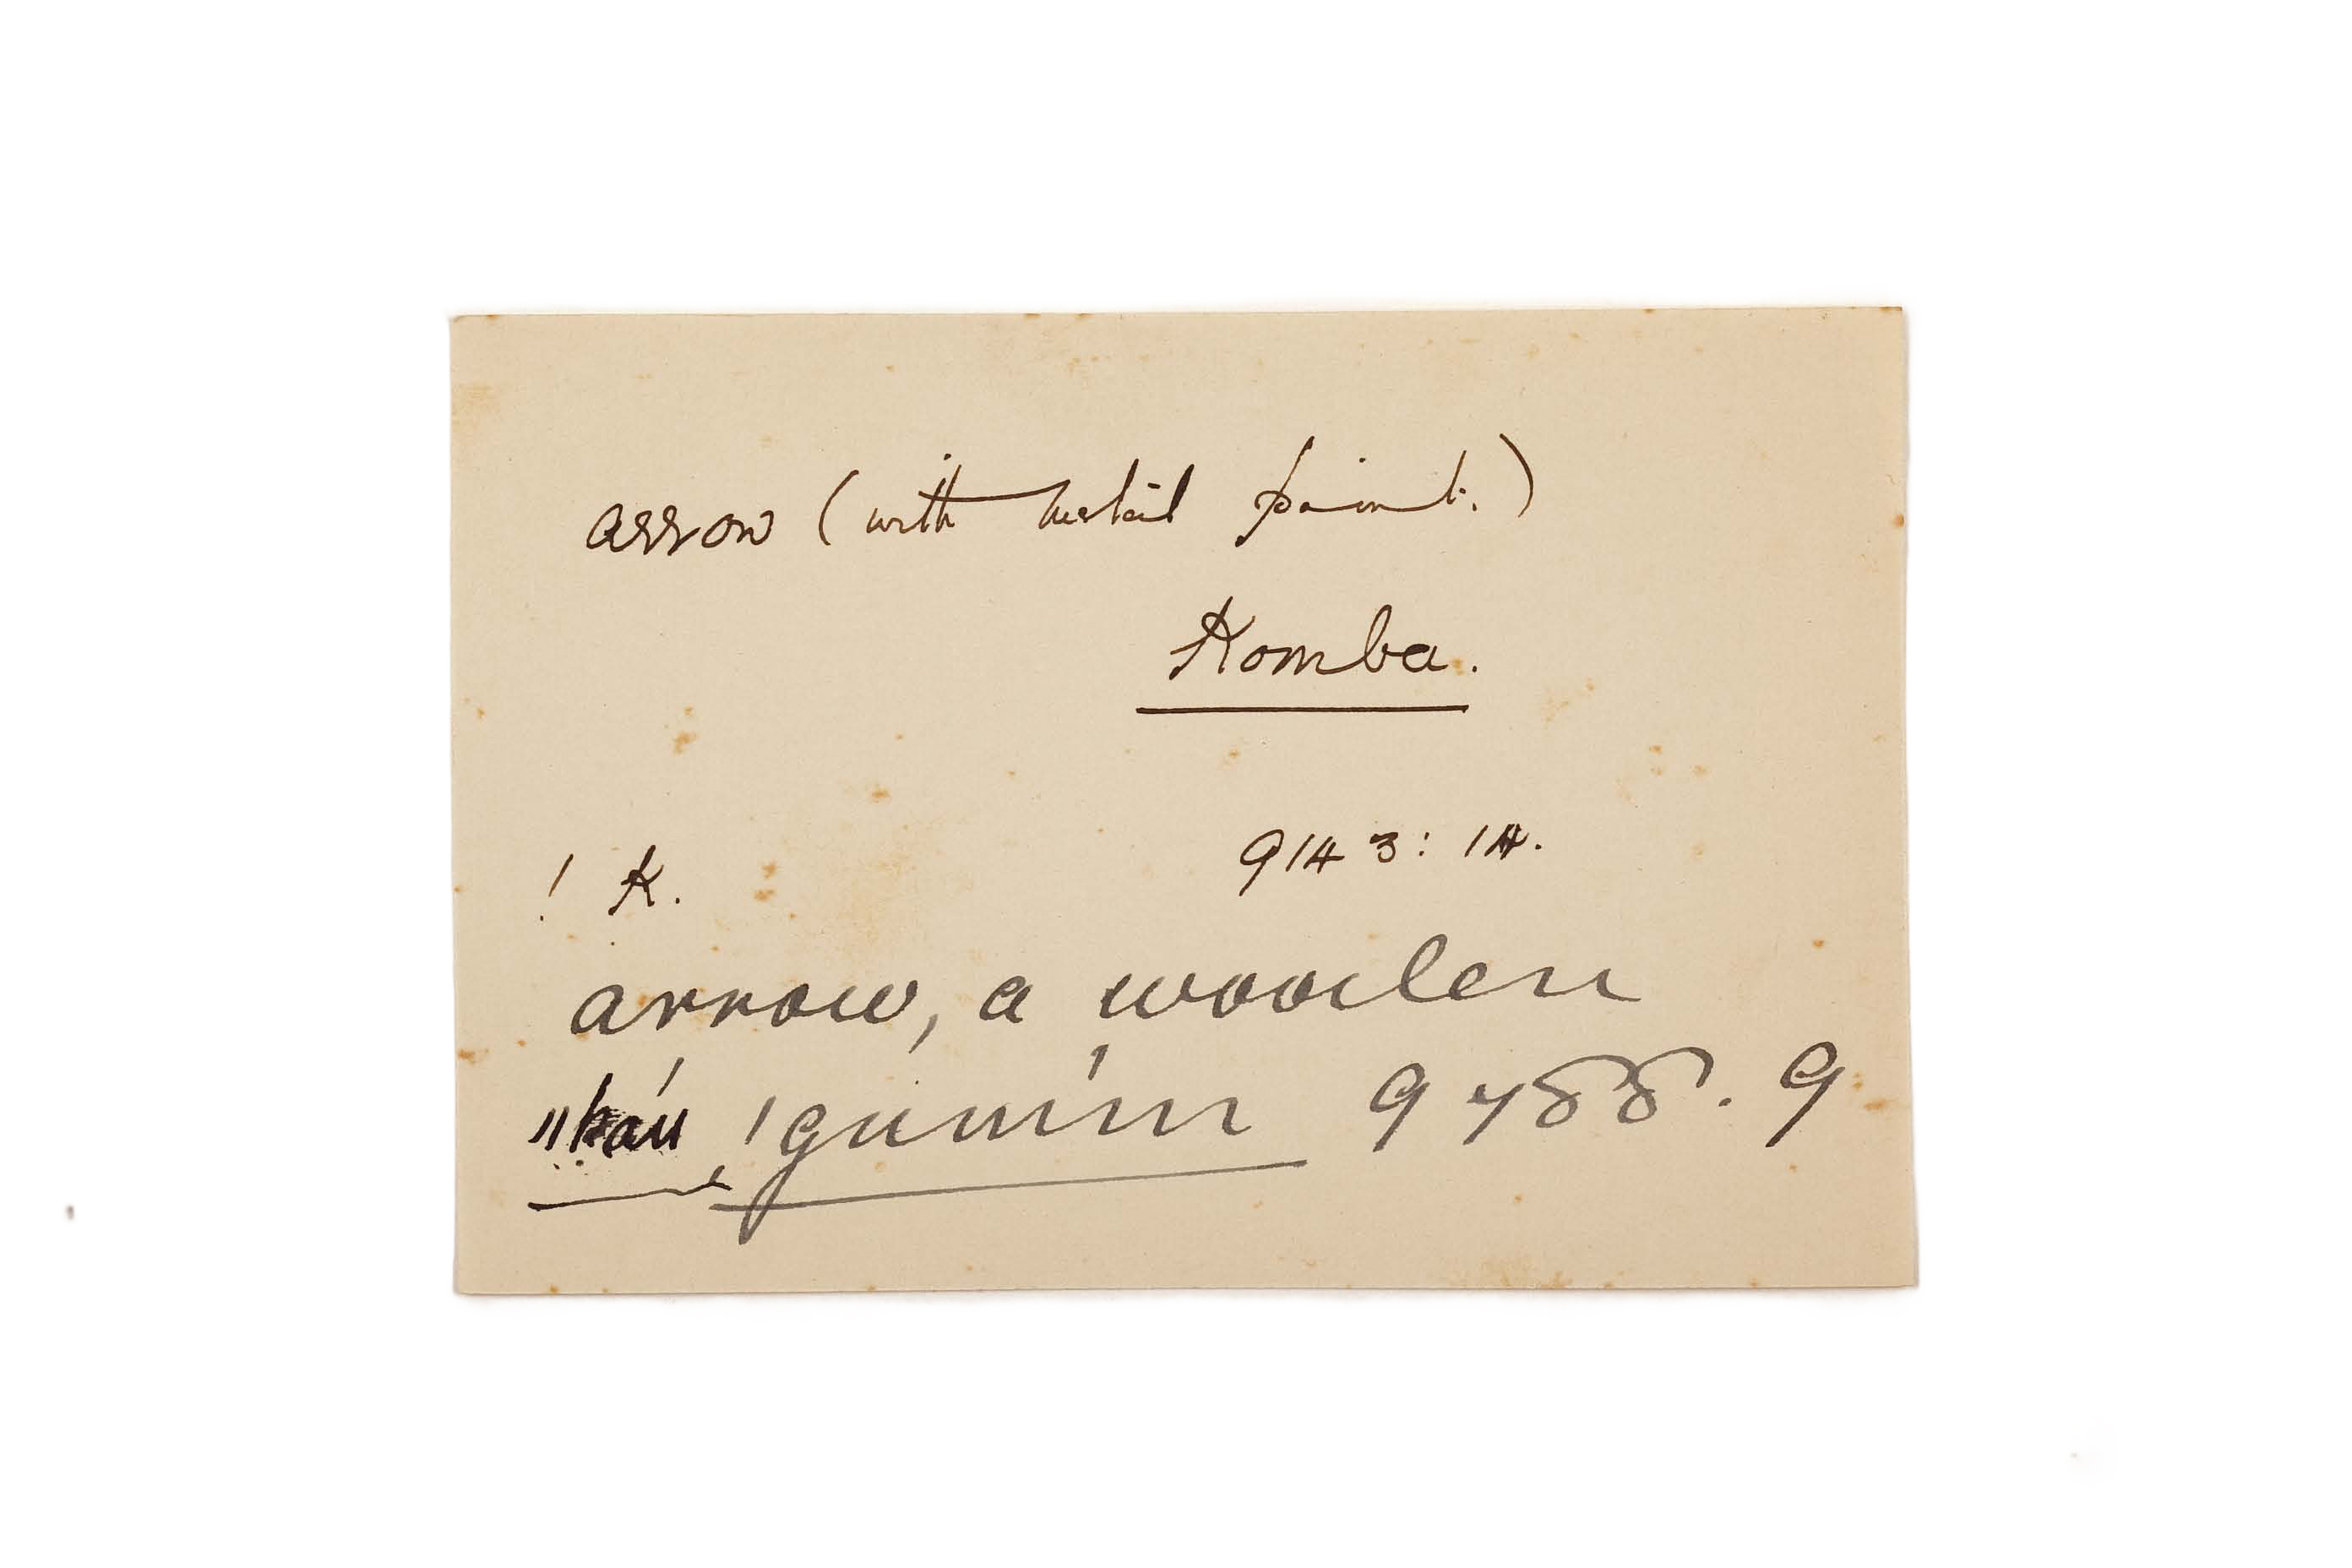 arrow (with metal point.)
Komba.
9143: 14.
! K.
arrow, a wooden
"káu !gúmm 9788.9